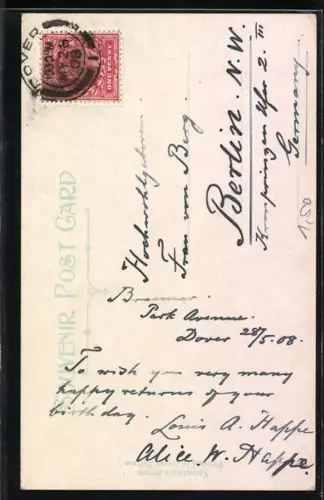 DOVER
MY 28
08
ONE PENNY
SOUVENIR POST CARD
Hochwohlgeboren
Frau von Berg.
Berlin. N.W.
Kronprinzen Ufer 2. III
Germany.
1,50
Braemar.
Park Avenue.
Dover 28/5.08.
To wish you very many
happy returns of your
birthday.
Louis A. Happe
Alice. W. Happe.